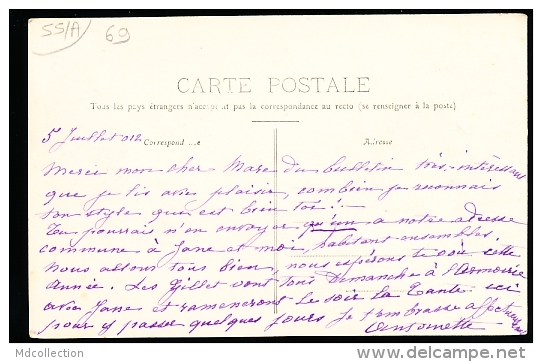 55/A 69
CARTE POSTALE
Tous les pays étrangers n'acceptent pas la correspondance au recto (se renseigner à la poste)
5 Juillet 012 Correspondance Adresse
Merci mon cher Marc du bulletin très-intéressant
que je lis avec plaisir, combien je reconnais
ton style que est bien toi! -
Tu pourrais n'en envoyer qu'un a notre adresse
commune à Jane et moi, habitant ensembles.
Nous allons tous bien, nous espérons te voir cette
année. Les Gillet vont tous Dimanche à l'
avec Jane et ramèneront le soir la Tante ici
pour y passer quelques jours Je t'embrasse affectueusement
Antoinette
Mdcollection
www.delcampe.net